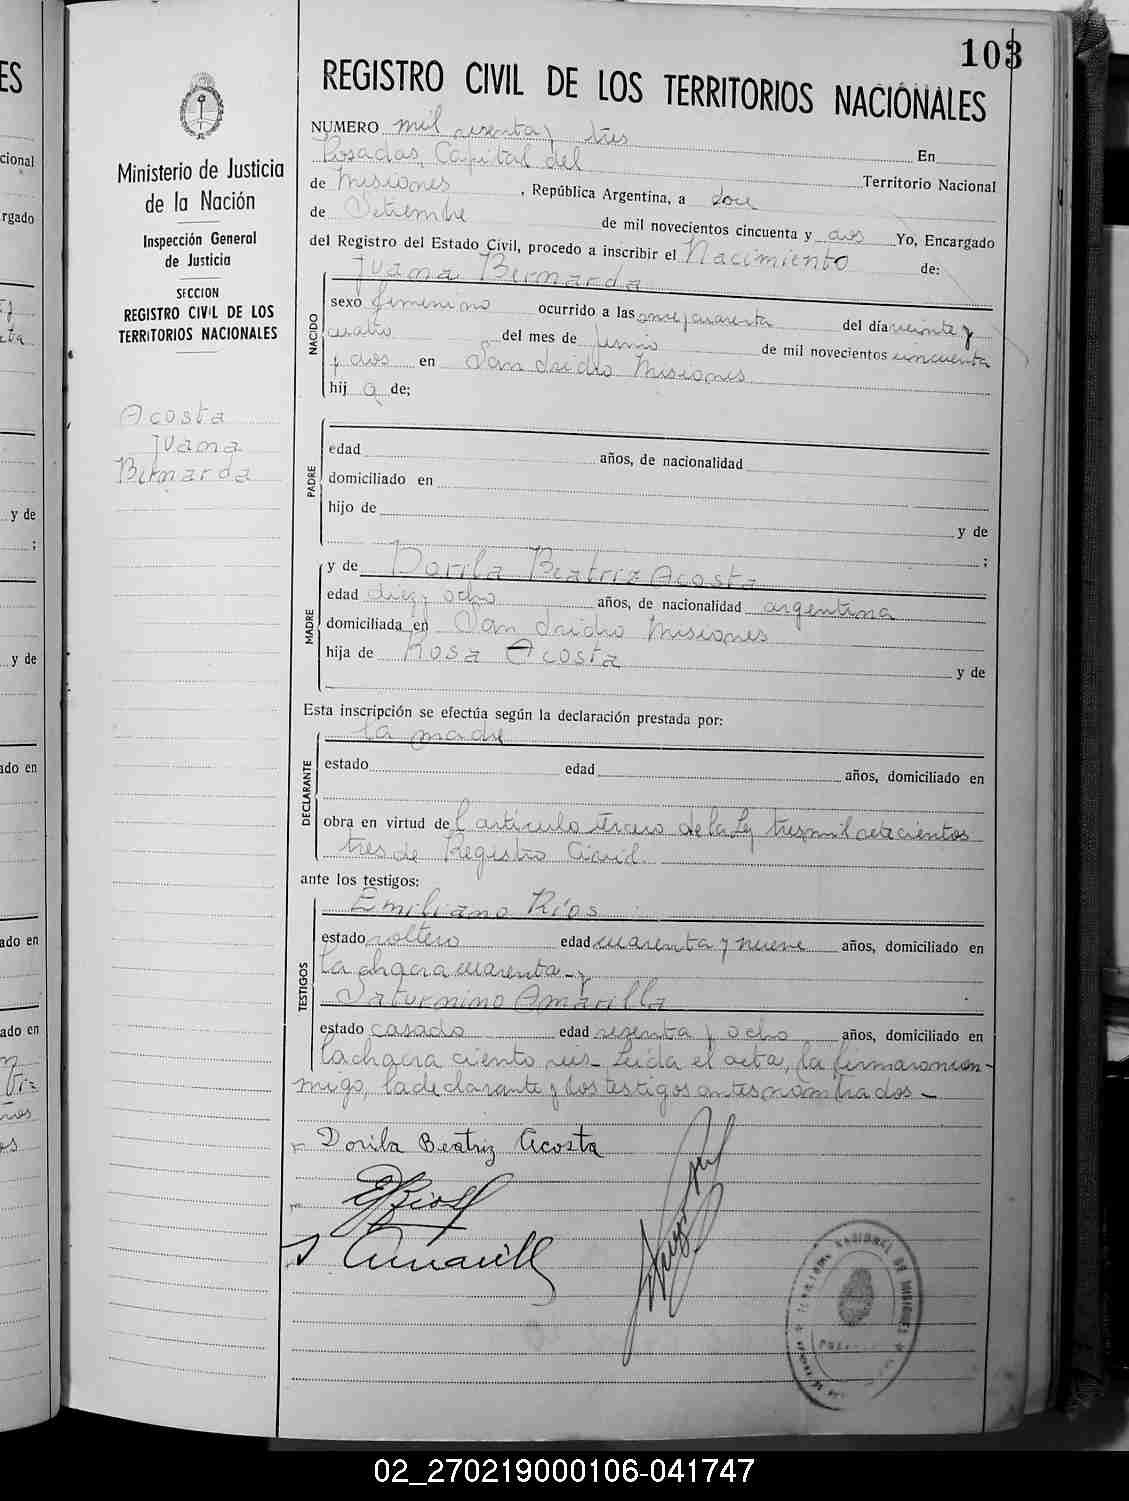 103
REGISTRO CIVIL DE LOS TERRITORIOS NACIONALES
Ministerio de Justicia
de la Nación
Inspección General
de Justicia
SECCION
REGISTRO CIVIL DE LOS
TERRITORIOS NACIONALES
Acosta
Juana
Bernarda
NUMERO mil sesenta y tres En
Posadas, Capital del Territorio Nacional
de Misiones, República Argentina, a doce
de Setiembre de mil novecientos cincuenta y dos Yo, Encargado
del Registro del Estado Civil, procedo a inscribir el Nacimiento de:
Juana Bernarda
NACIDO
sexo femenino ocurrido a las once y cuarenta del día veinte y
cuatro del mes de Junio de mil novecientos cincuenta
y dos en San Isidro Misiones
hij a de;
PADRE
edad años, de nacionalidad
domiciliado en
hijo de
y de
;
MADRE
y de Dorila Beatriz Acosta
edad diez y ocho años, de nacionalidad argentina
domiciliada en San Isidro Misiones
hija de Rosa Acosta
y de
Esta inscripción se efectúa según la declaración prestada por:
la madre
DECLARANTE
estado edad años, domiciliado en
obra en virtud de l articulo tercero de la Ley tres mil setecientos
tres de Registro Civil.
ante los testigos:
Emiliano Ríos
TESTIGOS
estado soltero edad cuarenta y nueve años, domiciliado en
la chacra cuarenta - y
Saturnino Amarilla
estado casado edad sesenta y ocho años, domiciliado en
la chacra ciento seis - Leida el acta, la firmaron con-
migo, la declarante y los testigos antes nombrados -
Dorila Beatriz Acosta
E Rios
S Amarill
02_270219000106-041747